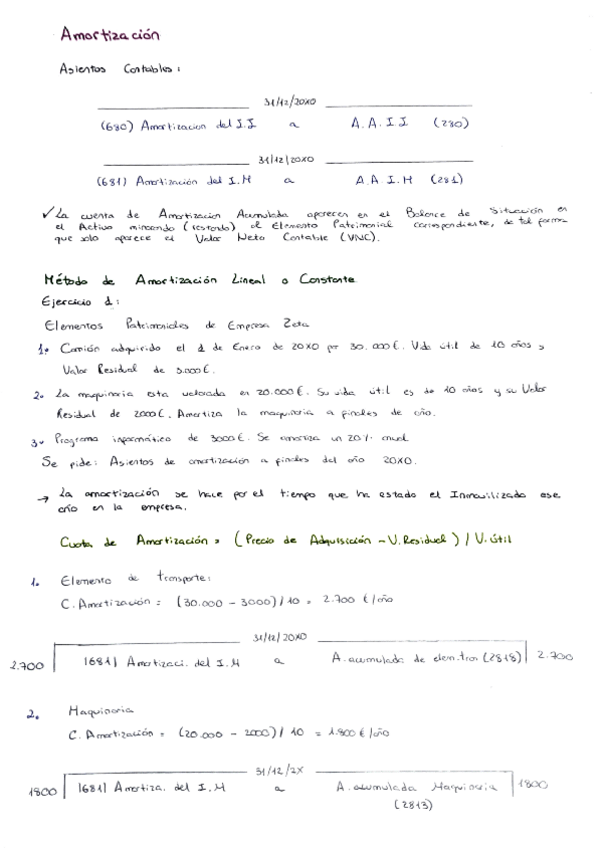 Amortización
Asientos Contables:
31/12/20X0
(680) Amortizacion del I.I a A.A.I.I (280)
31/12/20X0
(681) Amortización del I.M a A.A.I.M (281)
✓ La cuenta de Amortizacion Acumulada aparecen en el Balance de Situación en
el Activo minorando (restando) el Elemento Patrimonial correspondiente, de tal forma
que solo aparece el Valor Neto Contable (VNC).
Método de Amortización Lineal o Constante
Ejercicio 1:
Elementos Patrimoniales de Empresa Zeta
1. Camión adquirido el 1 de Enero de 20X0 por 30.000€. Vida útil de 10 años y
Valor Residual de 3.000€.
2. La maquinaria esta valorada en 20.000€. Su vida útil es de 10 años y su Valor
Residual de 2000€. Amortiza la maquinaria a finales de año.
3. Programa informático de 3000€. Se amortiza un 20% anual
Se pide: Asientos de amortización a finales del año 20X0.
→ La amortización se hace por el tiempo que ha estado el Inmovilizado ese
año en la empresa.
Cuota de Amortización = (Precio de Adquisición - V. Residual) / V. útil
1. Elemento de transporte:
C. Amortización = (30.000 - 3000) / 10 = 2.700 €/año
31/12/20X0
2.700 (681) Amortizaci. del I.M a A. acumulada de elem. tras (2818) 2.700
2. Maquinaria
C. Amortización = (20.000 - 2000) / 10 = 1.800 €/año
31/12/2X
1800 (681) Amortiza. del I.M a A. acumulada Maquinaria 1800
(2813)